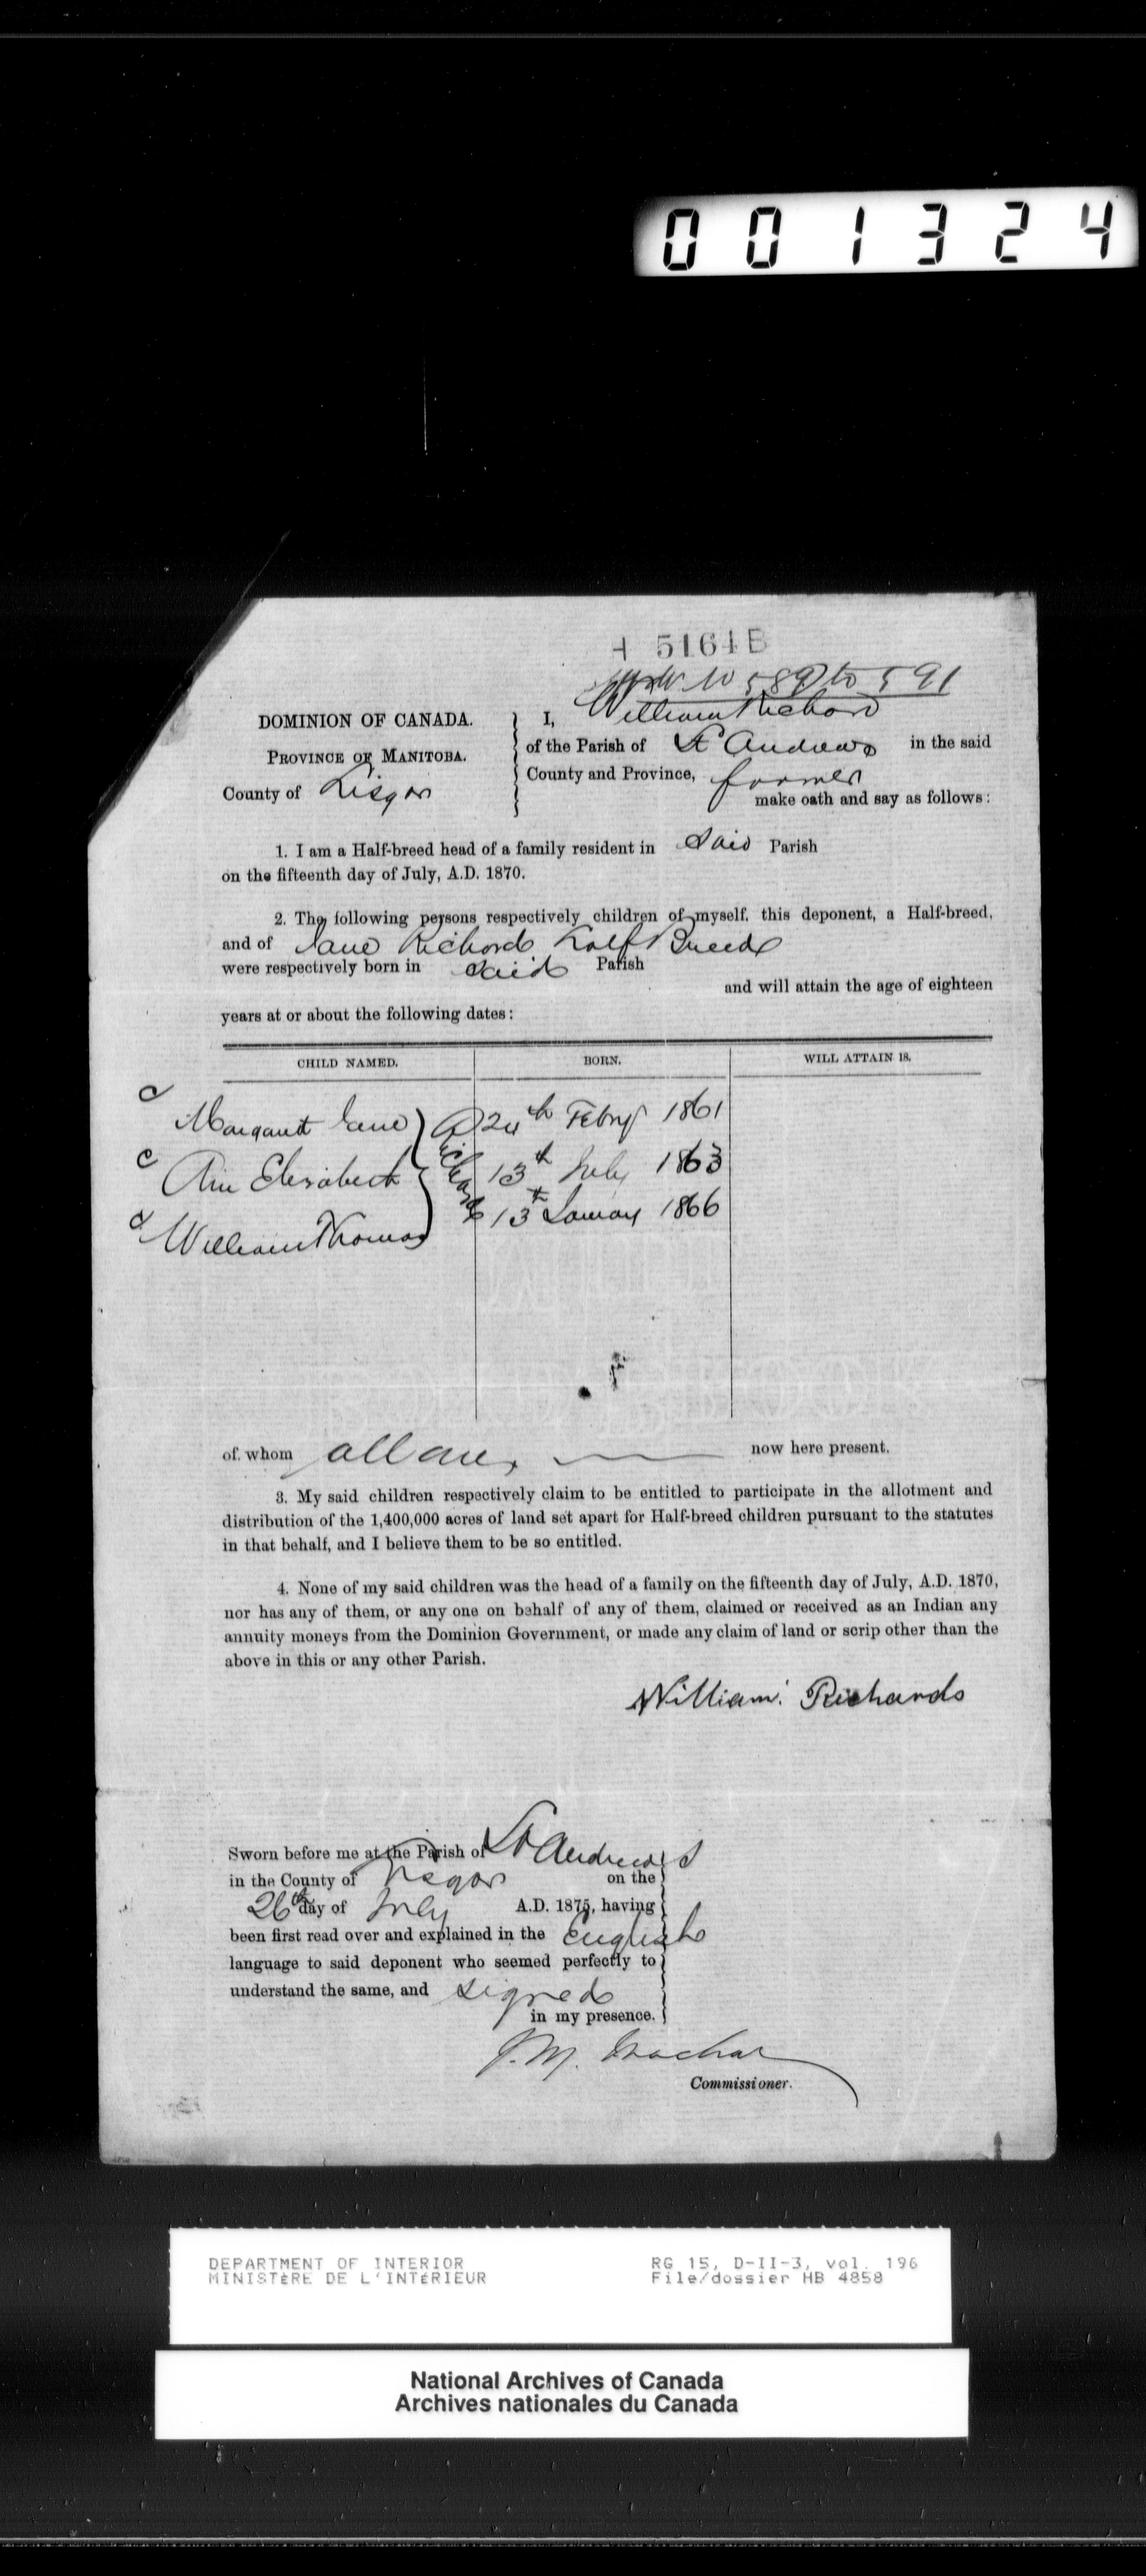 001324
H 5164 B
589 to 591
DOMINION OF CANADA.
PROVINCE OF MANITOBA.
County of Lisgar
I, William Richard
of the Parish of St Andrews in the said
County and Province, farmer
make oath and say as follows:
1. I am a Half-breed head of a family resident in Said Parish
on the fifteenth day of July, A.D. 1870.
2. The following persons respectively children of myself, this deponent, a Half-breed,
and of Jane Richards Half Breed
were respectively born in said Parish
and will attain the age of eighteen
years at or about the following dates:
CHILD NAMED. BORN. WILL ATTAIN 18.
c Margaret Jane 24th Febry 1861
c Ann Elisabeth Richards 13th July 1863
d William Thomas 13th January 1866
of whom all are, now here present.
3. My said children respectively claim to be entitled to participate in the allotment and
distribution of the 1,400,000 acres of land set apart for Half-breed children pursuant to the statutes
in that behalf, and I believe them to be so entitled.
4. None of my said children was the head of a family on the fifteenth day of July, A.D. 1870,
nor has any of them, or any one on behalf of any of them, claimed or received as an Indian any
annuity moneys from the Dominion Government, or made any claim of land or scrip other than the
above in this or any other Parish.
William Richards
Sworn before me at the Parish of St Andrews
in the County of Lisgar on the
26th day of July A.D. 1875, having
been first read over and explained in the English
language to said deponent who seemed perfectly to
understand the same, and signed
in my presence.
J. M. Machar
Commissioner.
DEPARTMENT OF INTERIOR RG 15, D-II-3, vol. 196
MINISTÈRE DE L'INTÉRIEUR File/dossier HB 4858
National Archives of Canada
Archives nationales du Canada